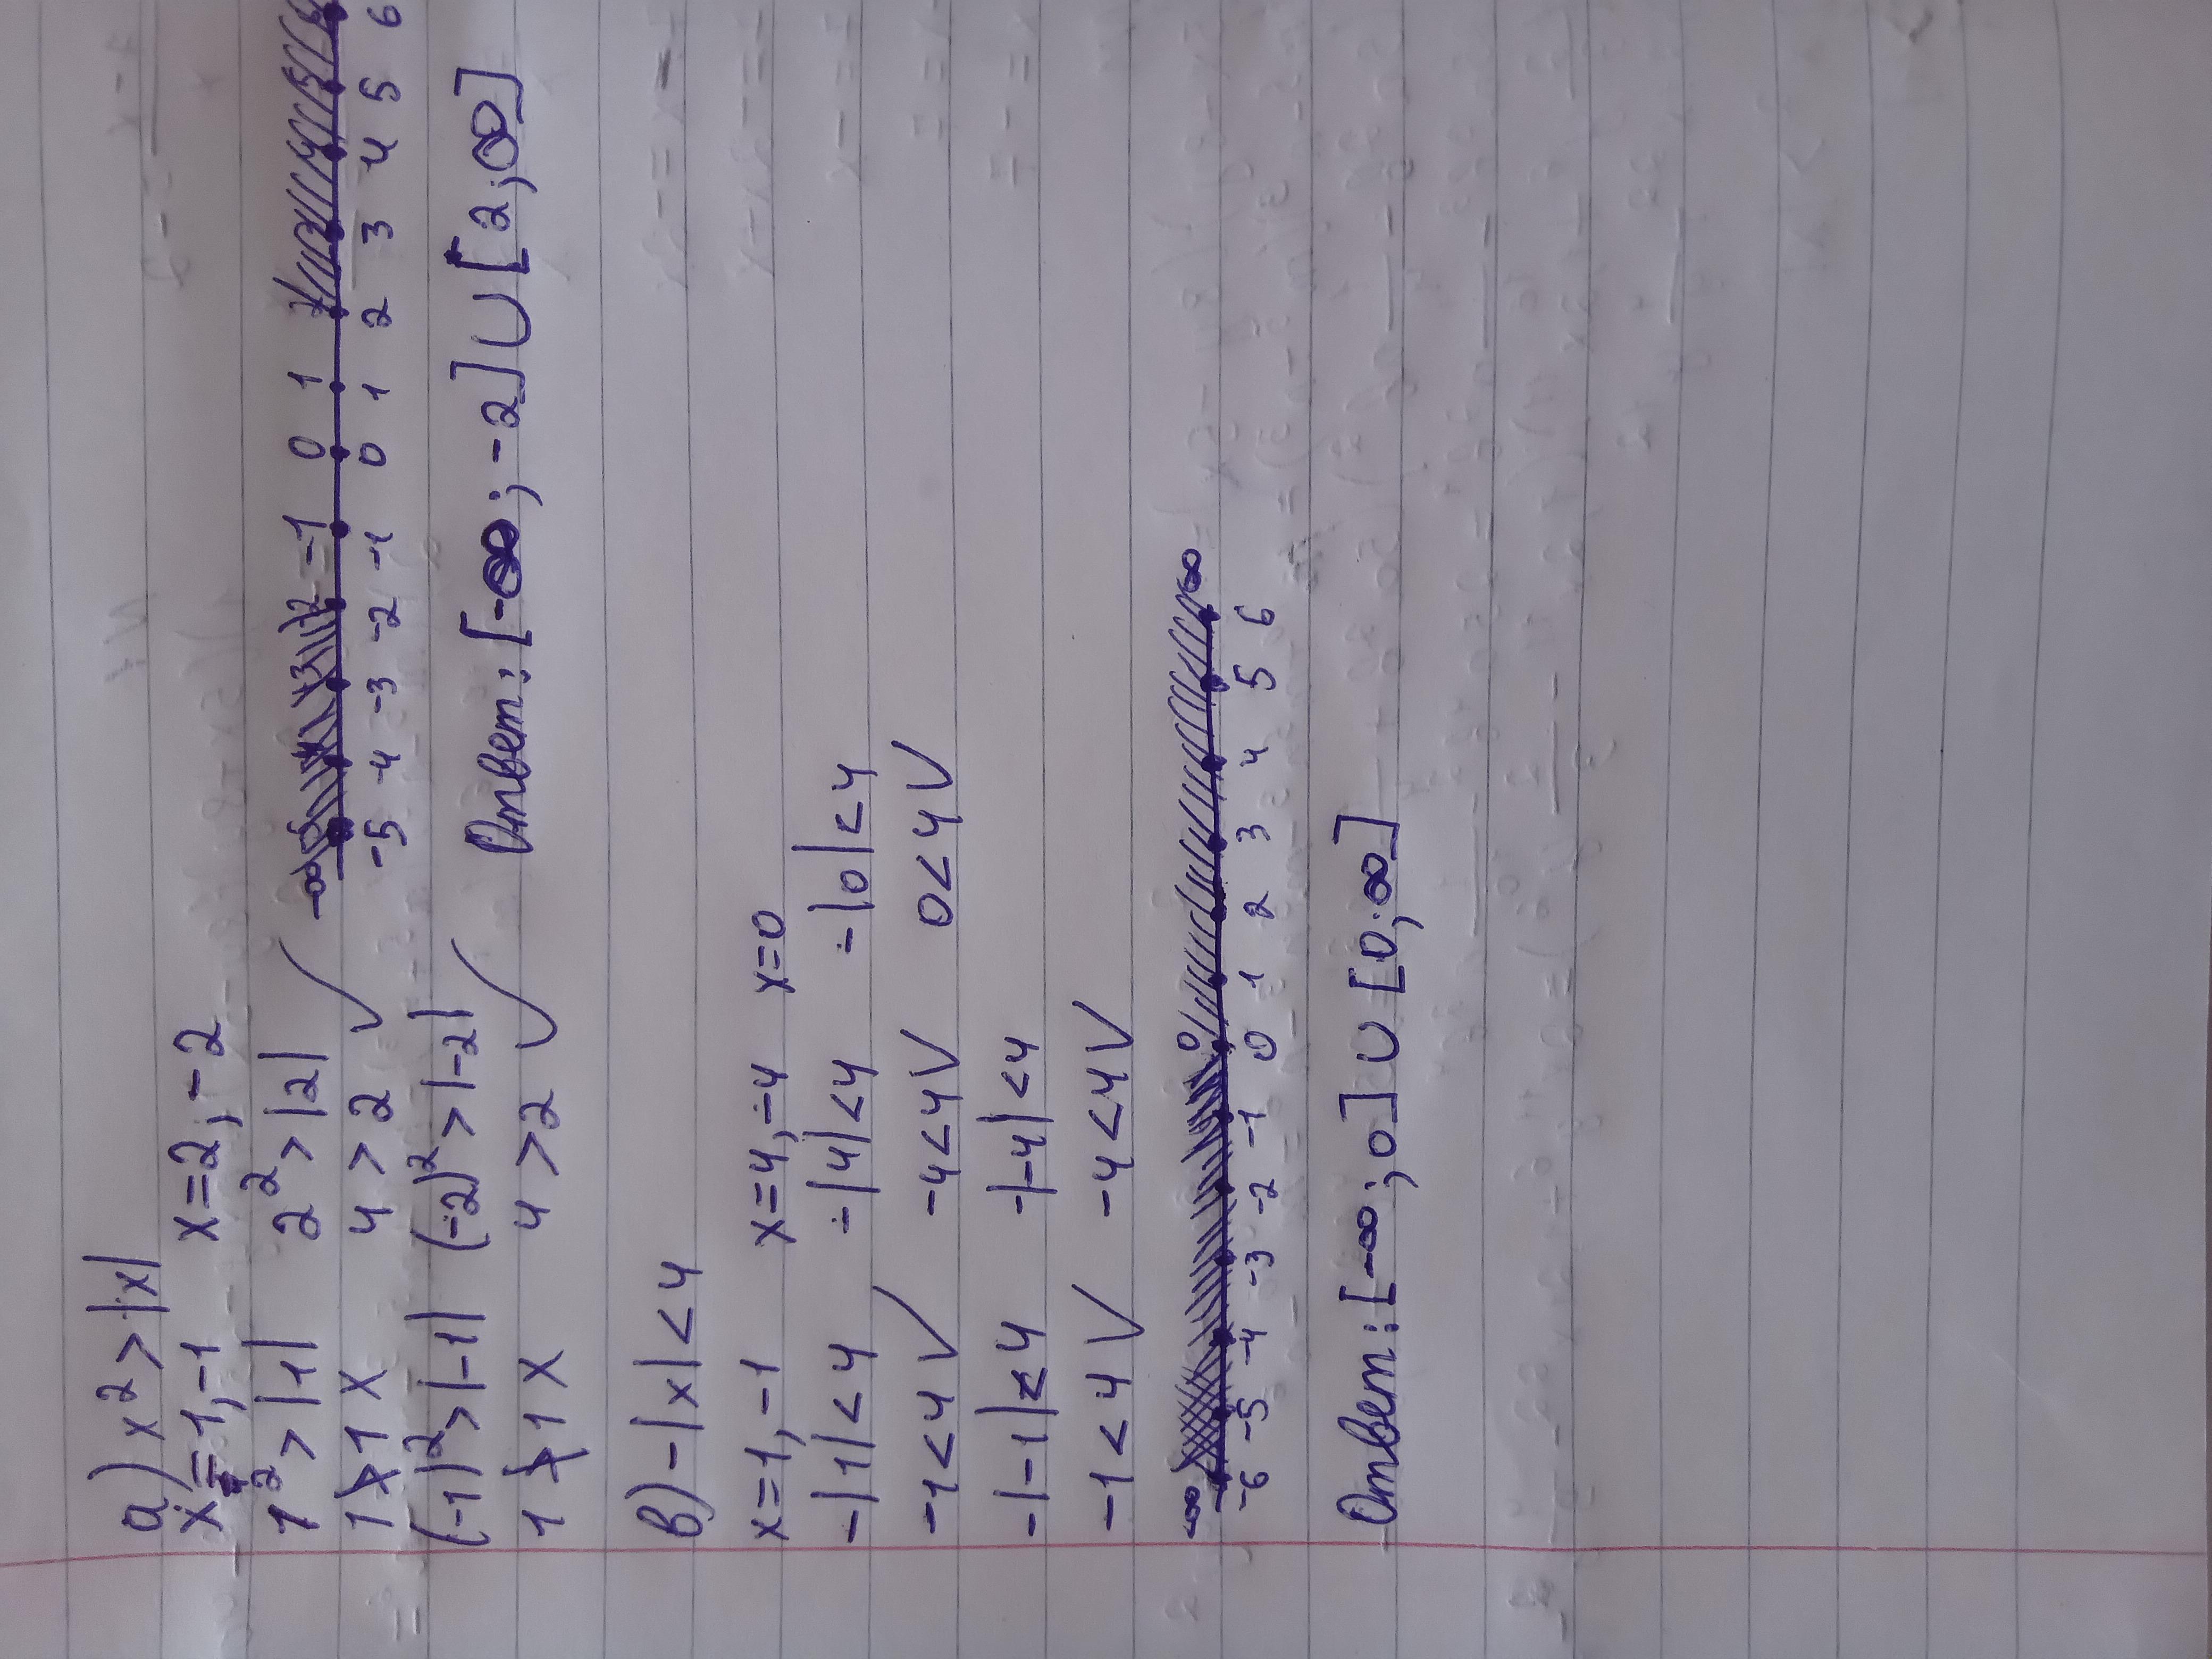 a) x² > |x|
x=1,-1 x=2,-2
1² > |1| 2² > |2|
1>1 x 4 > 2 ✓
(-1)² > |-1| (-2)² > |-2|
1>1 x 4 > 2 ✓
-∞ -2 -1 0 1
-5 -4 -3 -2 -1 0 1 2 3 4 5 6
Ответ: [-∞; -2] ∪ [2, ∞]
в) -|x| < 4
x=1,-1 x=4,-4 x=0
-|1| < 4 -|4| < 4 -|0| < 4
-1 < 4 ✓ -4 < 4 ✓ 0 < 4 ✓
-|-1| < 4 -|-4| < 4
-1 < 4 ✓ -4 < 4 ✓
-∞ 0 ∞
-6 -5 -4 -3 -2 -1 0 1 2 3 4 5 6
Ответ: [-∞; 0] ∪ [0; ∞]